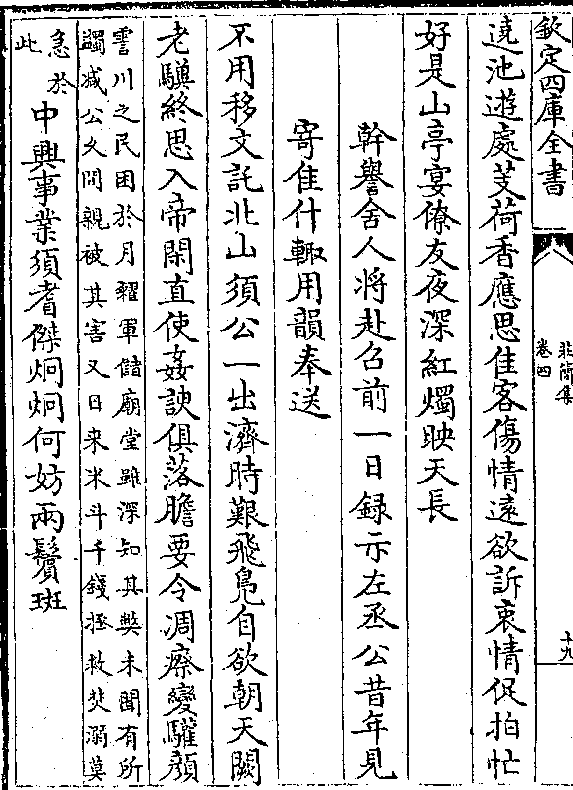 欽定四庫全書
莊簡集
卷四
十九
遶池遊處芰荷香應思佳客傷情遠欲訴衷情促拍忙
好是山亭宴僚友夜深紅燭映天長
幹譽舍人將赴召前一日録示左丞公昔年見
寄佳什輙用韻奉送
不用移文託北山須公一出濟時艱飛鳬自欲朝天闕
老驥終思入帝閑直使姦諛俱落膽要令凋瘵變驩顔
霅川之民困於月糴軍儲廟堂雖深知其弊未聞有所
蠲減公攵間親被其害又日来米斗千錢拯救焚溺莫
急於
此
中興事業須耆傑炯炯何妨兩鬢斑